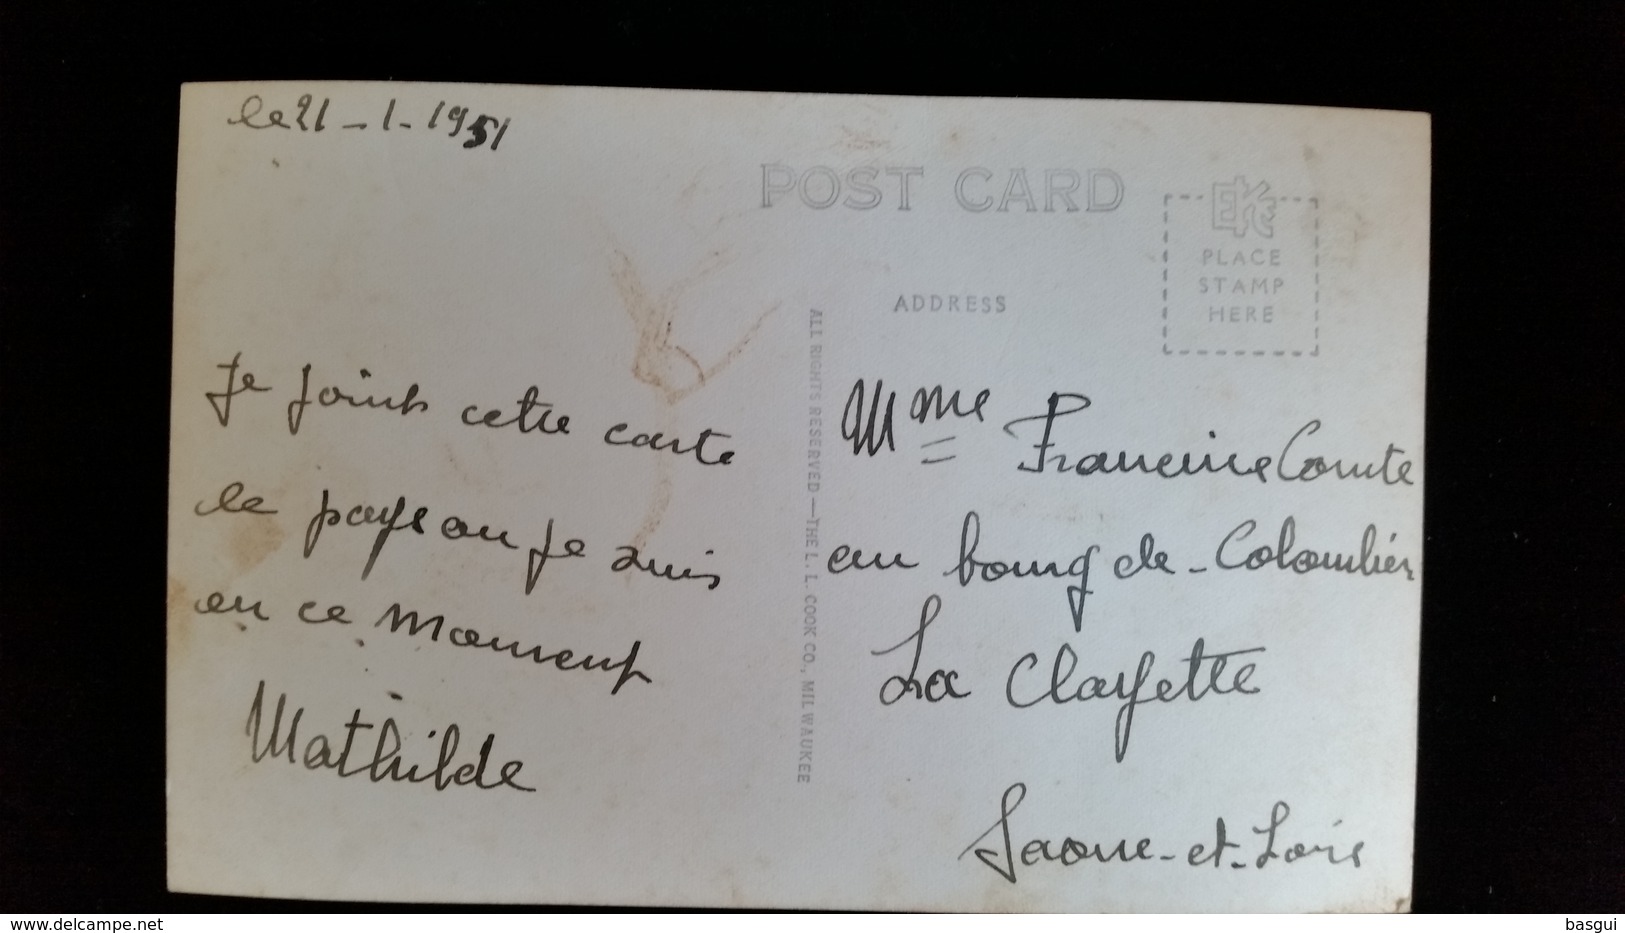 le 21-1-1951
POST CARD
EKC
PLACE
STAMP
HERE
ADDRESS
ALL RIGHTS RESERVED — THE L. L. COOK CO., MILWAUKEE
Je joints cette carte
le pays ou je suis
en ce moment
Mathilde
Mme Francine Comte
au bourg de - Colombier
La Clayette
Saone-et-Loire
basgui